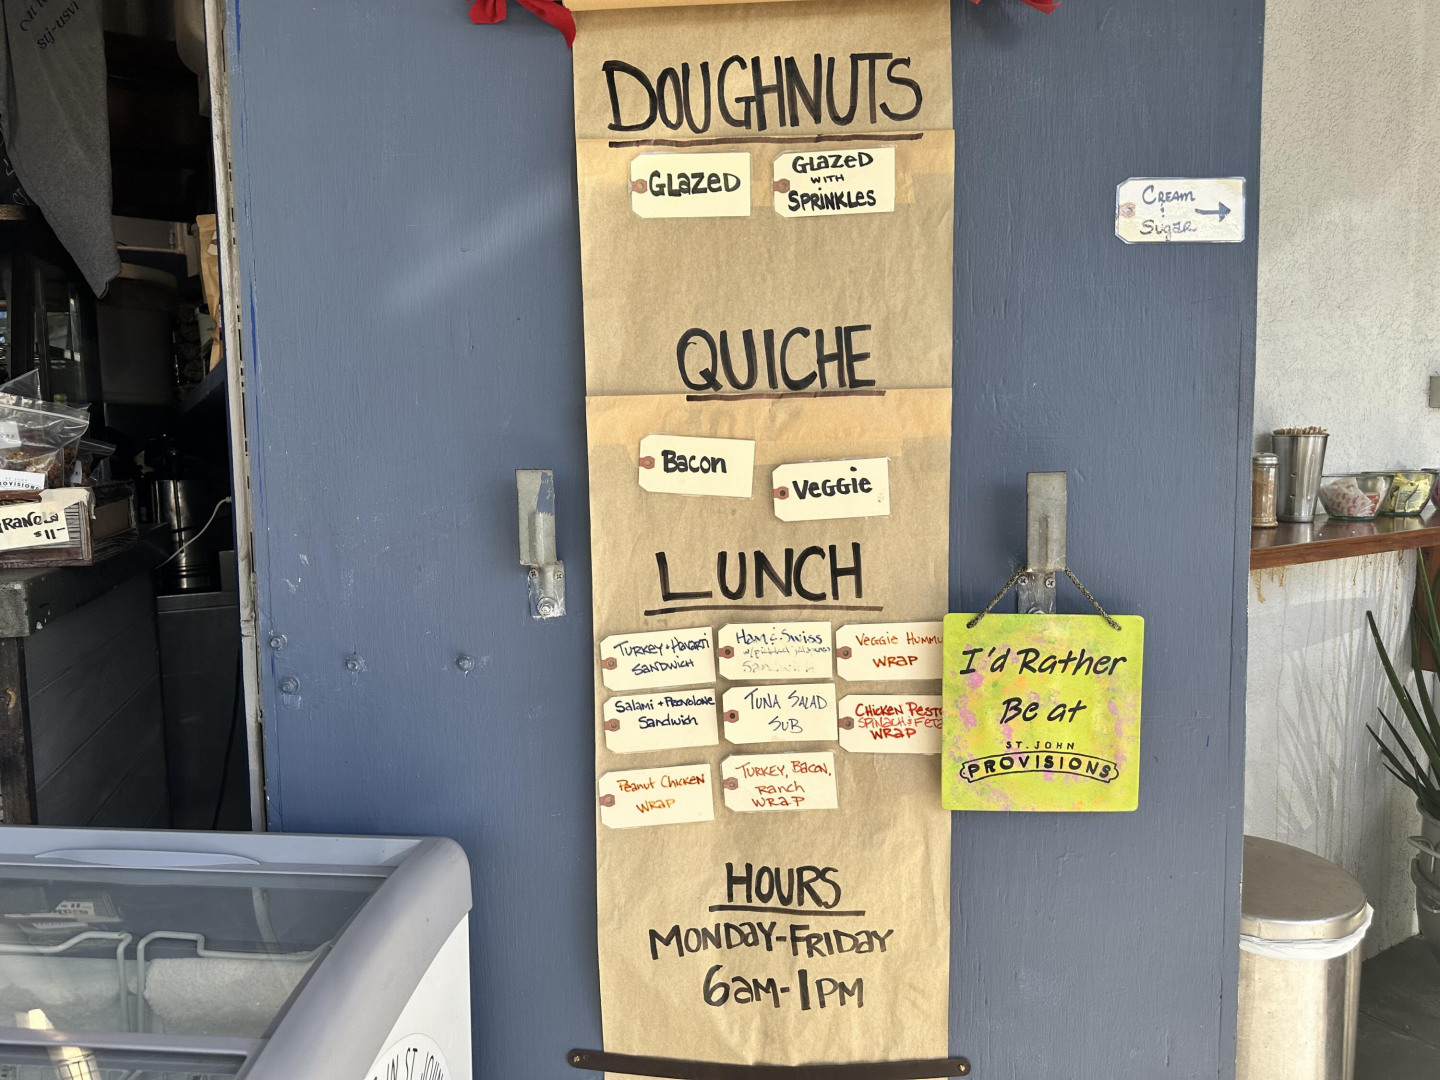 DOUGHNUTS
GLAZED
GLAZED
WITH
SPRINKLES
CREAM
&
Sugar
QUICHE
Bacon
VEGGIE
LUNCH
TURKEY + HAVARTI
SANDWICH
HAM & SWISS
VEGGIE HUMMU
WRAP
Salami + PROVOLONE
Sandwich
TUNA SALAD
SUB
CHICKEN PESTO
SPINACH & FETA
WRAP
Peanut Chicken
WRAP
TURKEY, BACON,
RANCH
WRAP
I'd Rather
Be at
ST. JOHN
PROVISIONS
HOURS
MONDAY-FRIDAY
6AM-1PM
stj-usvi
RANOLA
$11-
IN ST. JOHN